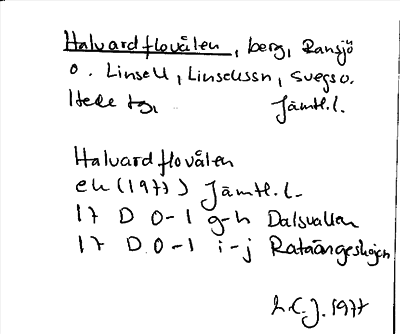 Halvardflovålen, berg, Ransjö
o. Linsell, Linsellssn, Svegs o.
Hede tg, Jämtl.l.
Halvardflovålen
ek (1977) Jämtl.l.
17 D 0-1 g-h Dalsvallen
17 D 0-1 i-j Rataängeshojen
h.C.J. 1977